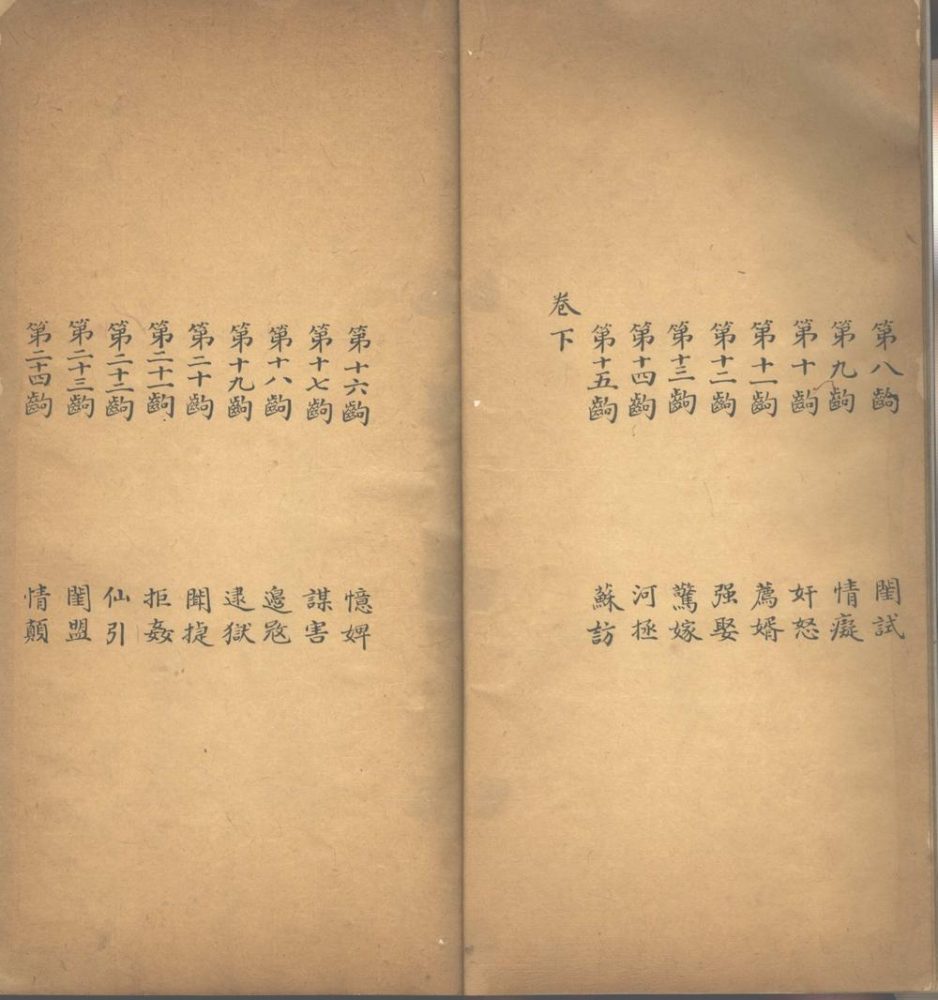 第八齣 閨試
第九齣 情癡
第十齣 奸怒
第十一齣 薦婿
第十二齣 强娶
第十三齣 驚嫁
第十四齣 河拯
第十五齣 蘇訪
卷下
第十六齣 憶婢
第十七齣 謀害
第十八齣 邊寇
第十九齣 逮獄
第二十齣 聞捷
第二十一齣 拒姦
第二十二齣 仙引
第二十三齣 閨盟
第二十四齣 情顛